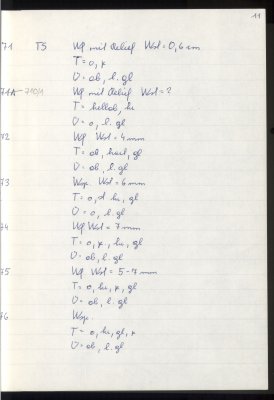 11
71 TS Wg mit Relief Wst = 0,6 cm
T = o, x
O = ob, l. gl
71A - 710/1 Wg mit Relief Wst = ?
T = hellob, hi
O = o, l. gl
72 Wg Wst = 4 mm
T = ob, gl
O = ob, l. gl
73 Wst = 6 mm
T = o, hi, gl
O = o, l. gl
74 Wg Wst = 7 mm
T = o, x, hi, gl
O = ob, l. gl
75 Wg Wst = 5-7 mm
T = o, hi, x, gl
O = ob, l. gl
76
T = o, hi, gl, x
O = ob, l. gl